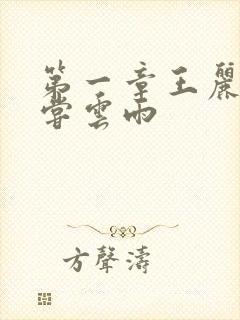 第一章王麗
嘗雲雨
方聲濤